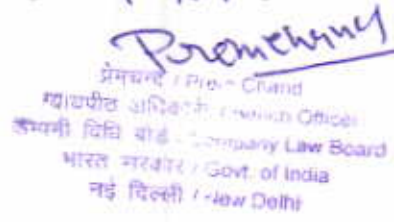 Premchand
प्रेमचन्द / Prem Chand
न्यायपीठ अधिकारी / Bench Officer
कम्पनी विधि बोर्ड / Company Law Board
भारत सरकार / Govt. of India
नई दिल्ली / New Delhi